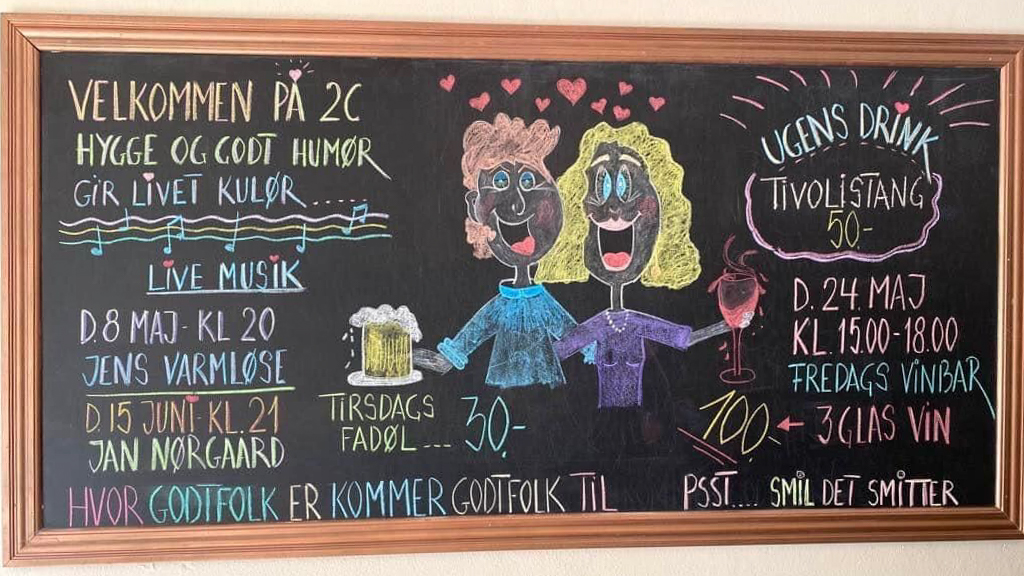 VELKOMMEN PÅ 2C
HYGGE OG GODT HUMØR
GIR LIVET KULØR.....
LIVE MUSIK
D.8 MAJ- KL 20
JENS VARMLØSE
D.15 JUNI-KL.21
JAN NØRGAARD
TIRSDAGS
FADØL.... 30,-
UGENS DRINK
TIVOLISTANG
50.-
D. 24. MAJ
KL. 15.00-18.00
FREDAGS VINBAR
100.- ← 3 GLAS VIN
HVOR GODTFOLK ER KOMMER GODTFOLK TIL
PSST.... SMIL DET SMITTER